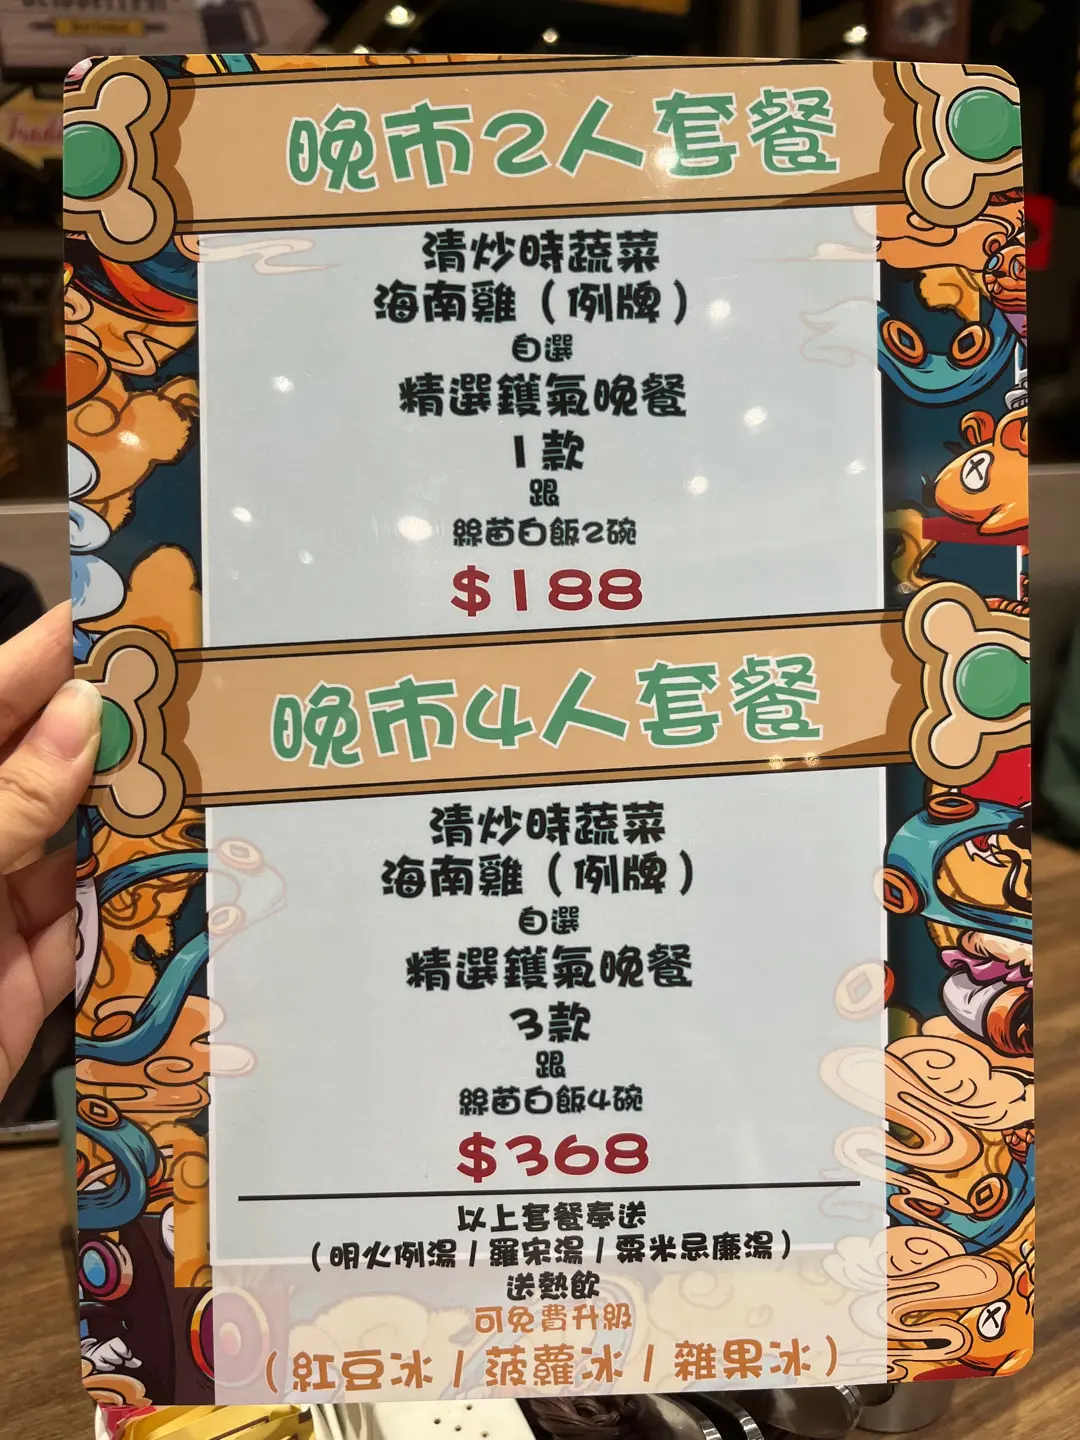 晚市2人套餐
清炒時蔬菜
海南雞（例牌）
自選
精選鑊氣晚餐
1款
跟
絲苗白飯2碗
$188
晚市4人套餐
清炒時蔬菜
海南雞（例牌）
自選
精選鑊氣晚餐
3款
跟
絲苗白飯4碗
$368
以上套餐奉送
（明火例湯/羅宋湯/粟米忌廉湯）
送熱飲
可免費升級
（紅豆冰/菠蘿冰/雜果冰）